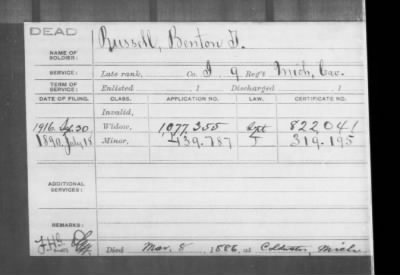 DEAD
NAME OF SOLDIER: Russell, Benton F.
SERVICE: Late rank, Co. I, 9 Reg't Mich. Cav.
TERM OF SERVICE: Enlisted , 1 Discharged , 1
DATE OF FILING. CLASS. APPLICATION NO. LAW. CERTIFICATE NO.
Invalid,
1916. Widow, 1077.355 822041
1890, July 18 Minor, 439.787 319.195
ADDITIONAL SERVICES:
REMARKS:
Died Mar. 8, 1886, at Coldwater, Mich.